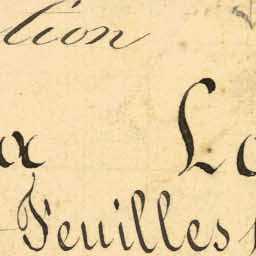 tion
a Lo
Feuilles